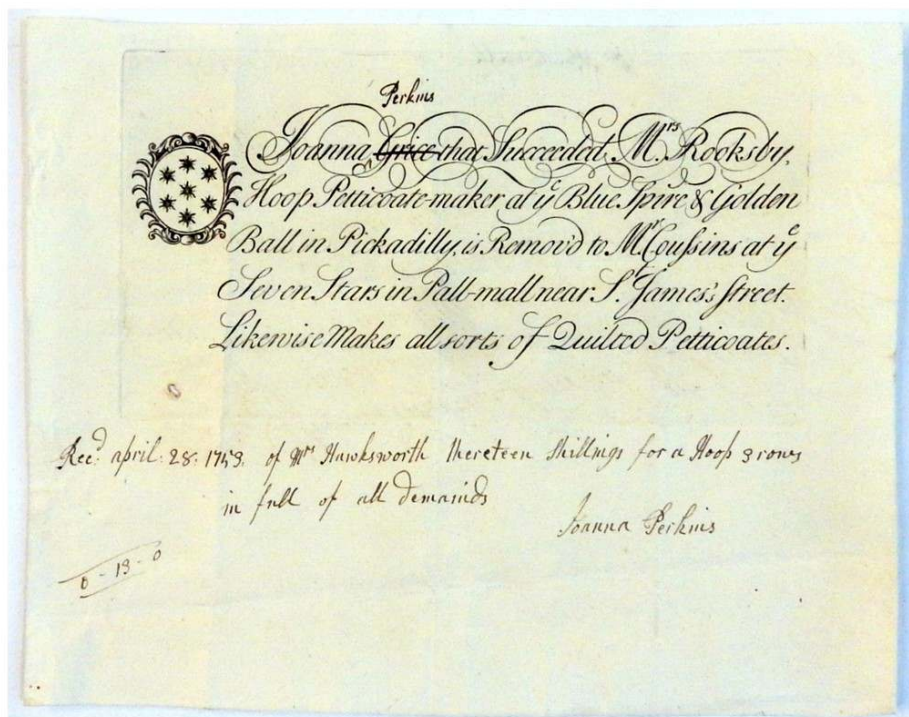 Perkins
Joanna Grice that Succeeded, Mrs. Rooksby,
Hoop Petticoate-maker at ye Blue Spire & Golden
Ball in Pickadilly, is Remov'd to Mr. Coussins at ye
Seven Stars in Pall-mall near St. James's Street.
Likewise Makes all sorts of Quilted Petticoates.
Recd. april. 28. of Mrs Hawksworth thereteen Shillings for a Hoop 3 rows
in full of all demainds
Joanna Perkins
0 - 13 - 0